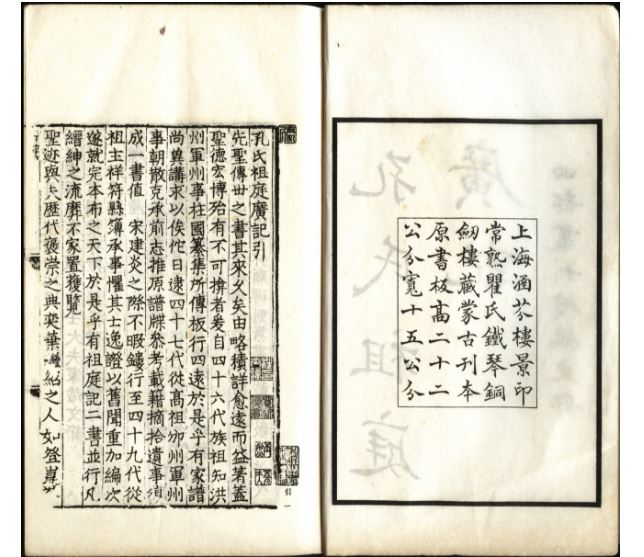 上海涵芬樓景印
常熟瞿氏鐵琴銅
劍樓藏蒙古刊本
原書板高二十二
公分寬十五公分
孔氏祖庭廣記引
先聖傳世之書其來久矣由略積詳愈遠而益著蓋
聖德宏博殆有不可揜者爰自四十六代族祖知洪
州軍州事柱國纂集所傳板行四遠於是乎有家譜
尚冀講求以俟他日逮四十七代從高祖邠州軍州
事朝散克承前志推原譜牒參考載籍摘拾遺事復
成一書值 宋建炎之際不暇鏤行至四十九代從
祖主祥符縣簿承事懼其亡逸證以舊聞重加編次
遂就完本布之天下於是乎有祖庭記二書並行凡
縉紳之流靡不家置獲覽
聖迹與夫歷代褒崇之典奕葉 紹之人如登